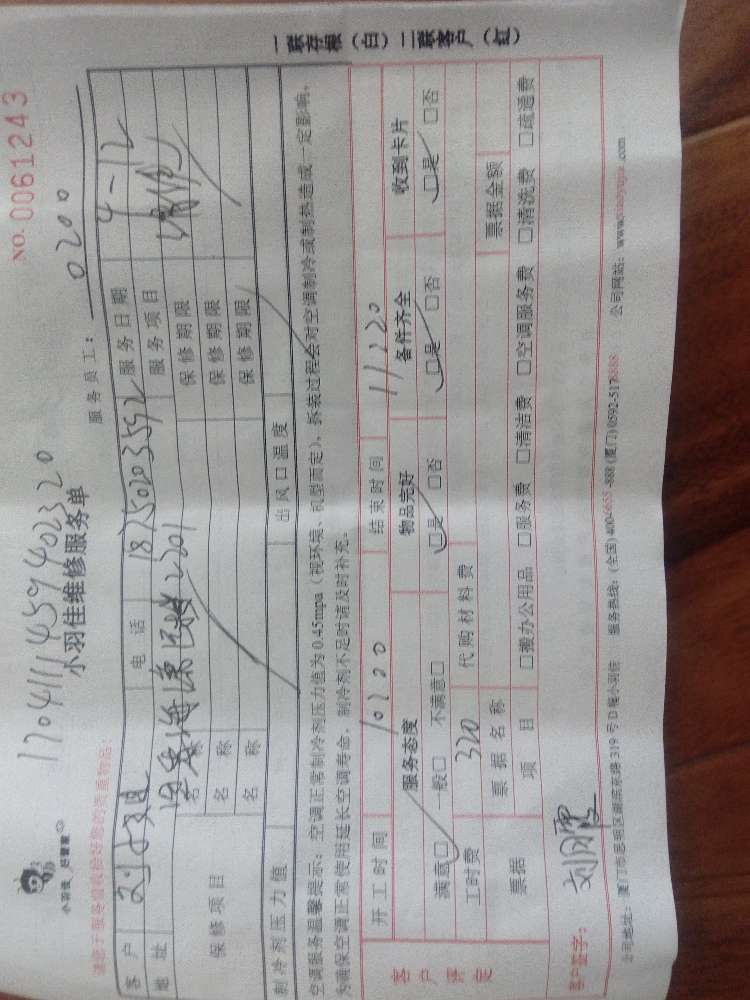 NO. 0061243
小羽佳 好管家
1704111459402320
小羽佳维修服务单
服务员工： 0200
请您于服务前收捡好您的贵重物品！
客户 电话 18750203592 服务日期 4-12
地址 2201 服务项目 维修
保修项目
名称 保修期限
名称 保修期限
名称 保修期限
制冷剂压力值 出风口温度
空调服务温馨提示：空调正常制冷剂压力值为0.45mpa（视环境、机型而定），拆装过程会对空调制冷或制热造成一定影响，
为确保空调正常使用延长空调寿命，制冷剂不足时请及时补充。
客户评定
开工时间 10:20 结束时间 11:20
服务态度 物品完好 备件齐全 收到卡片
满意□ 一般□ 不满意□ □是 □否 □是 □否 □是 □否
工时费 320 代购材料费
票据 票据名称 票据金额
项目 □搬办公用品 □服务费 □清洁费 □空调服务费 □清洗费 □疏通费
客户签字：
公司地址：厦门市思明区湖滨东路319号D幢小羽佳 服务热线：(全国)400-6655-888 (厦门)0592-5178888 公司网站：www.xiaoyujia.com
一联存根（白）二联客户（红）